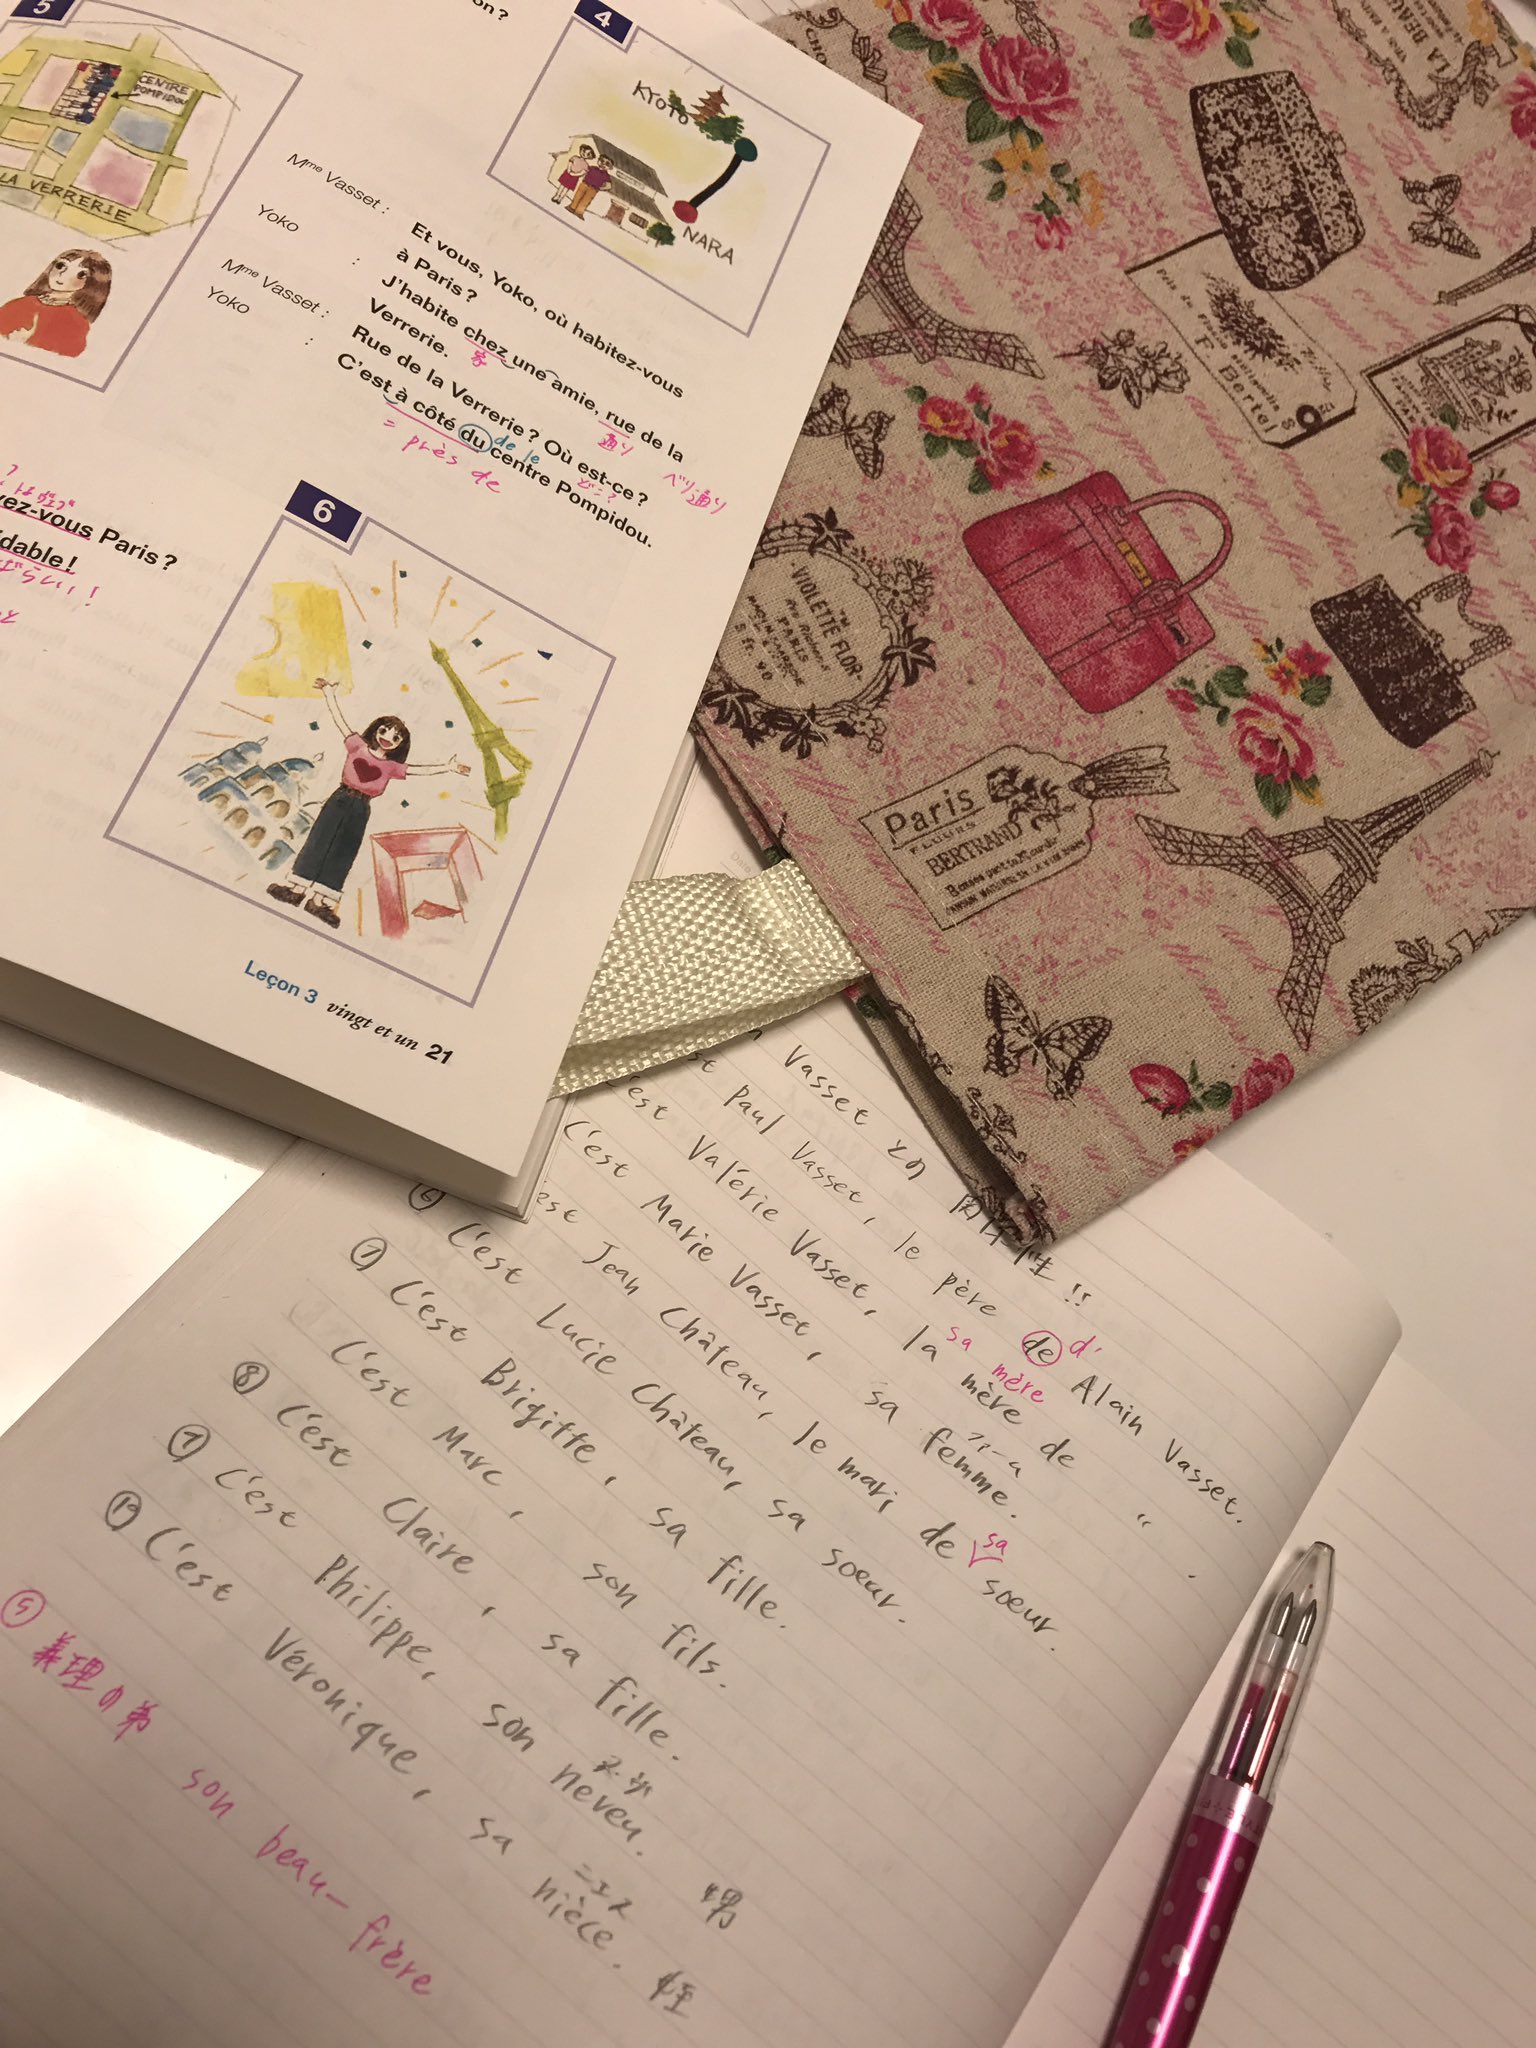 5
CENTRE
POMPIDOU
LA VERRERIE
on ?
4
KYOTO
NARA
Mme Vasset :
Et vous, Yoko, où habitez-vous
à Paris ?
Yoko :
J'habite chez une amie, rue de la
家
通り
Verrerie.
Mme Vasset :
Rue de la Verrerie ? Où est-ce ?
Yoko :
C'est à côté du centre Pompidou.
de le
= près de
vez-vous Paris ?
dable !
ばらしい!
6
Leçon 3 vingt et un 21
LA BEAU
Bertel
VIOLETTE FLOR
PARIS
Paris
FLEURS
BERTRAND
Vasset との 関係性 !!
est Paul Vasset, le père de Alain Vasset.
d'
C'est Valérie Vasset, la mère de 〃 .
sa mère
C'est Marie Vasset, sa femme.
C'est Jean Château, le mari de sa sœur.
⑥ C'est Lucie Château, sa sœur.
⑦ C'est Brigitte, sa fille.
C'est Marc, son fils.
⑧ C'est Claire, sa fille.
C'est Philippe, son neveu. 甥
C'est Véronique, sa nièce. 姪
ニエス
⑤ 義理の弟 son beau-frère